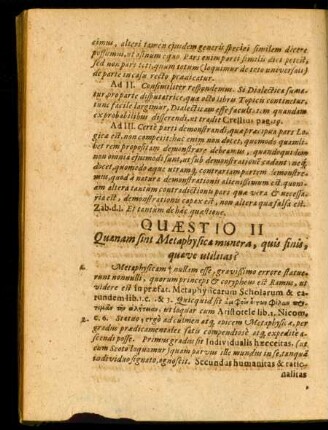 cimui, alteri tamen ejusdem generis speciei similem dicere
possemus, et est nunc quo Pars enim parti similis dici potest,
sed non pars toti, quin totum (loquimur de toto universali)
de parte in casu recto prædicatur.
Ad II. Consimiliter respondemus. Si Dialectica sumatur,
pro parte disputatrice, quæ octo libris Topicis continetur,
tunc facile largimur, Dialecticam esse facultatem quandam
ex probabilibus disserendi, ut tradit Crellius pag. 19.
Ad III. Certè parti demonstrandi, quæ præcipua pars Logicæ
est, non competit, hæc enim non docet, quomodo quamlibet
rem propositam demonstrare debeamus,
dicet, quomodo æque utramq; contrariam partem demonstremus,
quod à natura demonstrationis alienissimum est, quoniam
altera tantum contradictionis pars quæ vera & necessaria
est, demonstrationis capax est, non altera quæ falsa est.
Zab. d. l. Et tantum de hac quæstione.
QUÆSTIO II
Quænam sint Metaphysicæ munera, quis finis,
quæve utilitas?
Metaphysicam nullam esse, gravissimo errore statuerunt
nonnulli, quorum princeps & coryphæus est Ramus, ut
videre est in præfat. Metaphysicarum Scholarum & earundem
lib. 1. c. & 3. Quicquid sit
την αλήθειαν, ut loquar cum Aristotele lib. 1. Nicom.
c. 6. Statuo, ergò ad culmen atq; apicem Metaphysicæ, per
gradus prædicamentales satis compendiosè atq; expedite ascendi
posse. Primus gradus sit Individualis hæcceitas. (ut
cum Scoto loquamur) quam parvus ille mundus in se, tanquã
individuo signato, agnoscit. Secundus humanitas & rationalitas